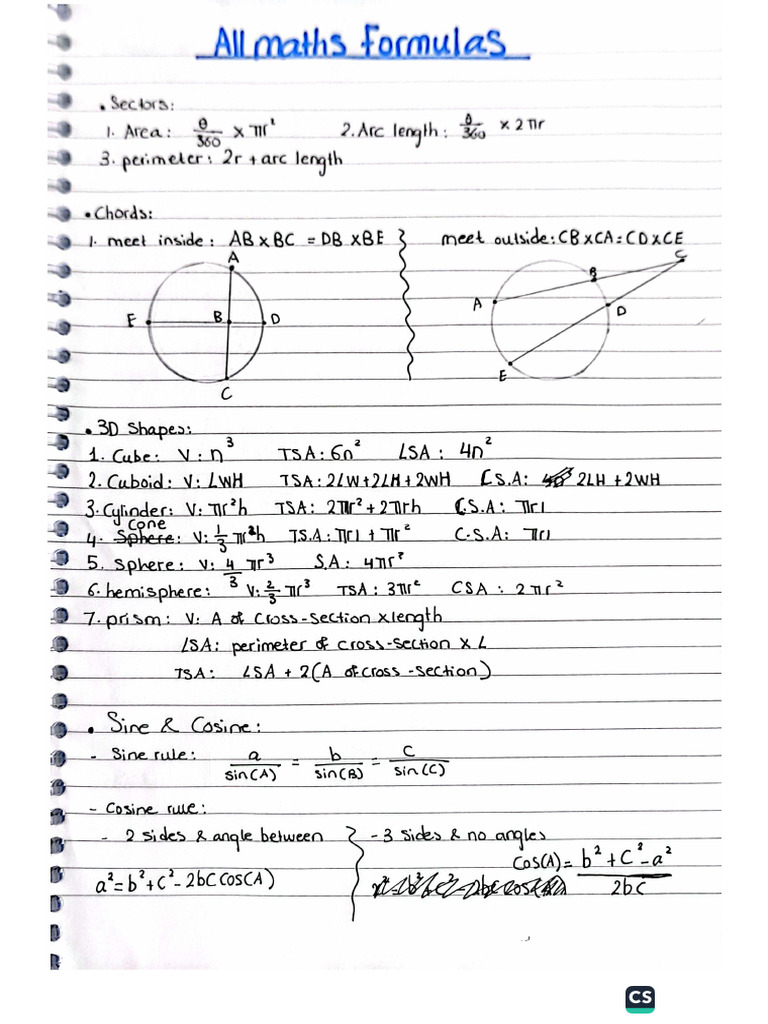 All maths Formulas
• Sectors:
1. Area: θ/360 × πr² 2. Arc length: θ/360 × 2πr
3. perimeter: 2r + arc length
• Chords:
1. meet inside: AB×BC = DB×BE meet outside: CB×CA=CD×CE
A
C
B
A
E B D
D
E
C
• 3D Shapes:
1. Cube: V: n³ TSA: 6n² LSA: 4n²
2. Cuboid: V: LWH TSA: 2LW+2LH+2WH L.S.A: 2LH+2WH
3. Cylinder: V: πr²h TSA: 2πr²+2πrh C.S.A: πrl
cone
4. Sphere: V: 1/3 πr²h T.S.A: πrl + πr² C.S.A: πrl
5. Sphere: V: 4/3 πr³ S.A: 4πr²
6. hemisphere: V: 2/3 πr³ TSA: 3πr² CSA: 2πr²
7. prism: V: A of cross-section × length
LSA: perimeter of cross-section × L
TSA: LSA + 2(A of cross-section)
• Sine & Cosine:
- Sine rule: a/sin(A) = b/sin(B) = c/sin(C)
- Cosine rule:
- 2 sides & angle between - 3 sides & no angles
cos(A) = b²+c²-a²/2bc
a²=b²+c²-2bc cos(A)
CS